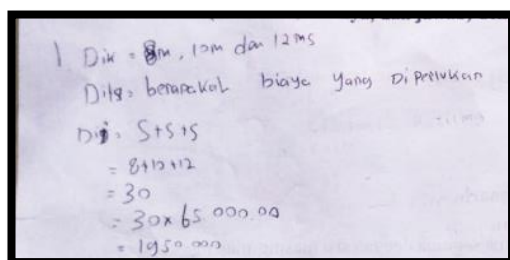 1 Dik = 8m, 10m dan 12 ms
Dit = berapakah biaya yang Diperlukan
Dij = S+S+S
= 8+10+12
= 30
= 30 x 65 000.00
= 1950.000